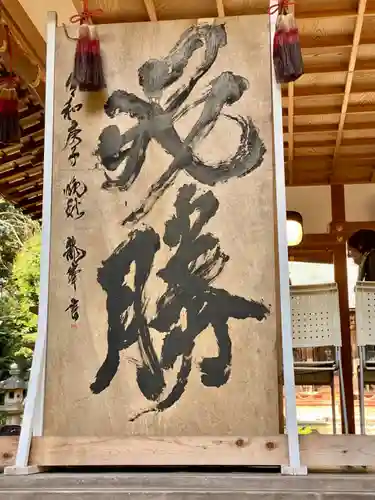 必勝
令和庚子晩秋龍峯書